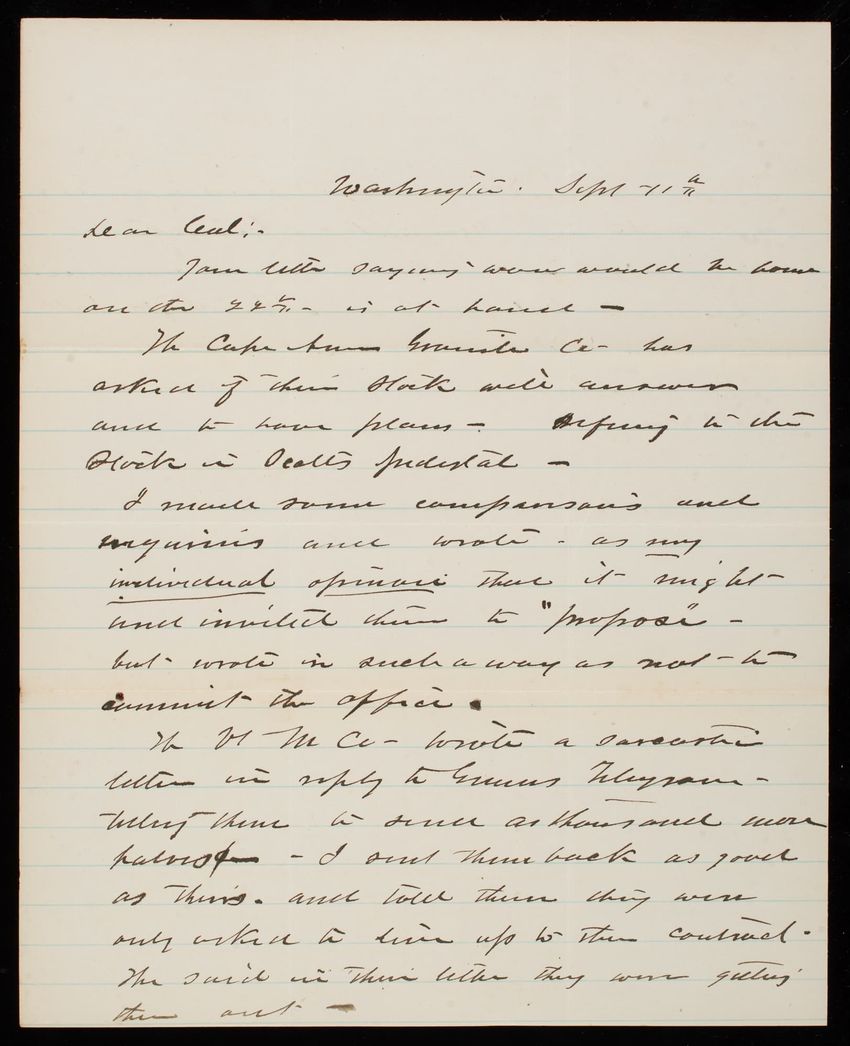 Washington. Sept 11th
Dear Casl:-
Your letter saying would be home
on the 22d - is at hand -
The Cape Ann Granite Co - has
asked if their stock will answer
and to have plans - refering to the
stock in Scotts pedestal -
I made some comparisons and
inquiries and wrote - as my
individual opinion that it might
and invited them to "propose" -
but wrote in such a way as not to
commit the office.
The Vt M Co - wrote a sarcastic
letter in reply to Greens Telegram -
telling them to send a thousand more
- I sent them back as good
as theirs. and told them they were
only asked to live up to their contract.
He said in their letter they were getting
them out -